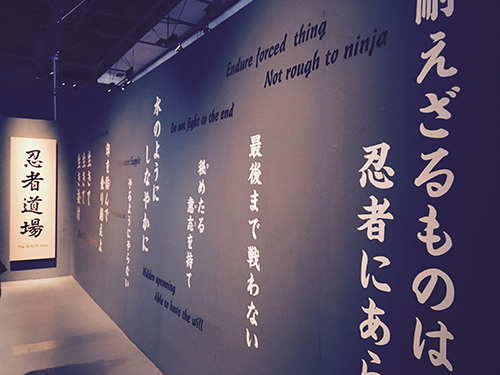 耐えざるものは
忍者にあら
Endure forced thing
Not rough to ninja
最後まで戦わない
Do not fight to the end
秘めたる
意志を持て
Hidden upcoming
Able to have the will
水のように
しなやかに
Supple
生きて
忍者道場
The NINJA Dojo